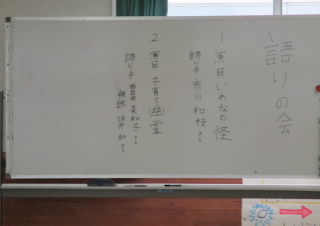 語りの会
1 演目 いめなの怪
語り手 市川 和枝 さん
2 演目 子育て幽霊
語り手 豊田 美和子 さん